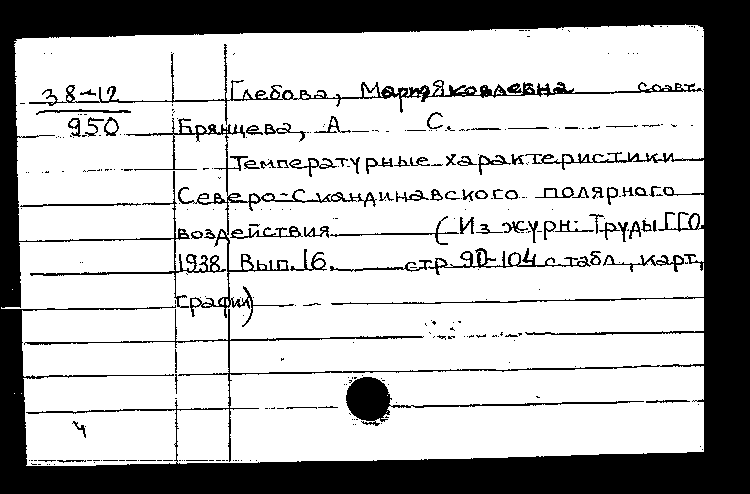 38-12 Глебова, Мария Яковлевна соавт.
950 Брянцева, А С.
Температурные характеристики
Северо-Скандинавского полярного
воздействия (Из журн: Труды ГГО.
1938 Вып. 16. стр 90-104 с табл., карт,
график)
ч